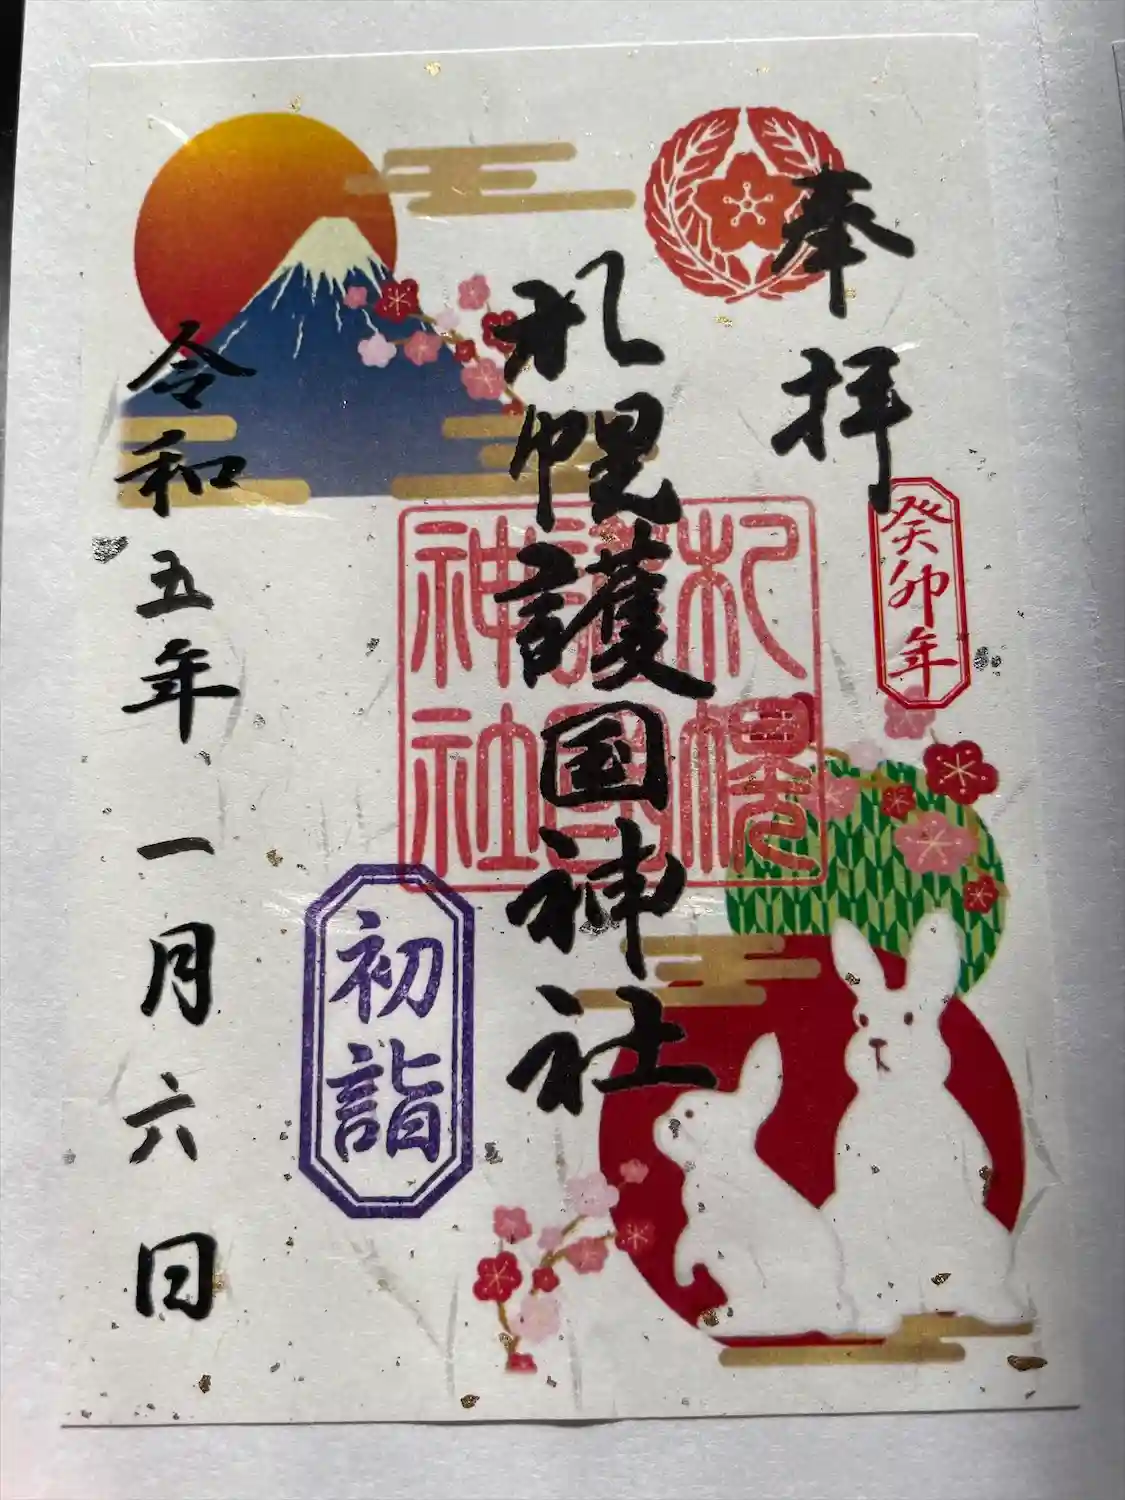 奉拝
癸卯年
札幌護国神社
札幌
護國
神社
初詣
令和五年一月六日